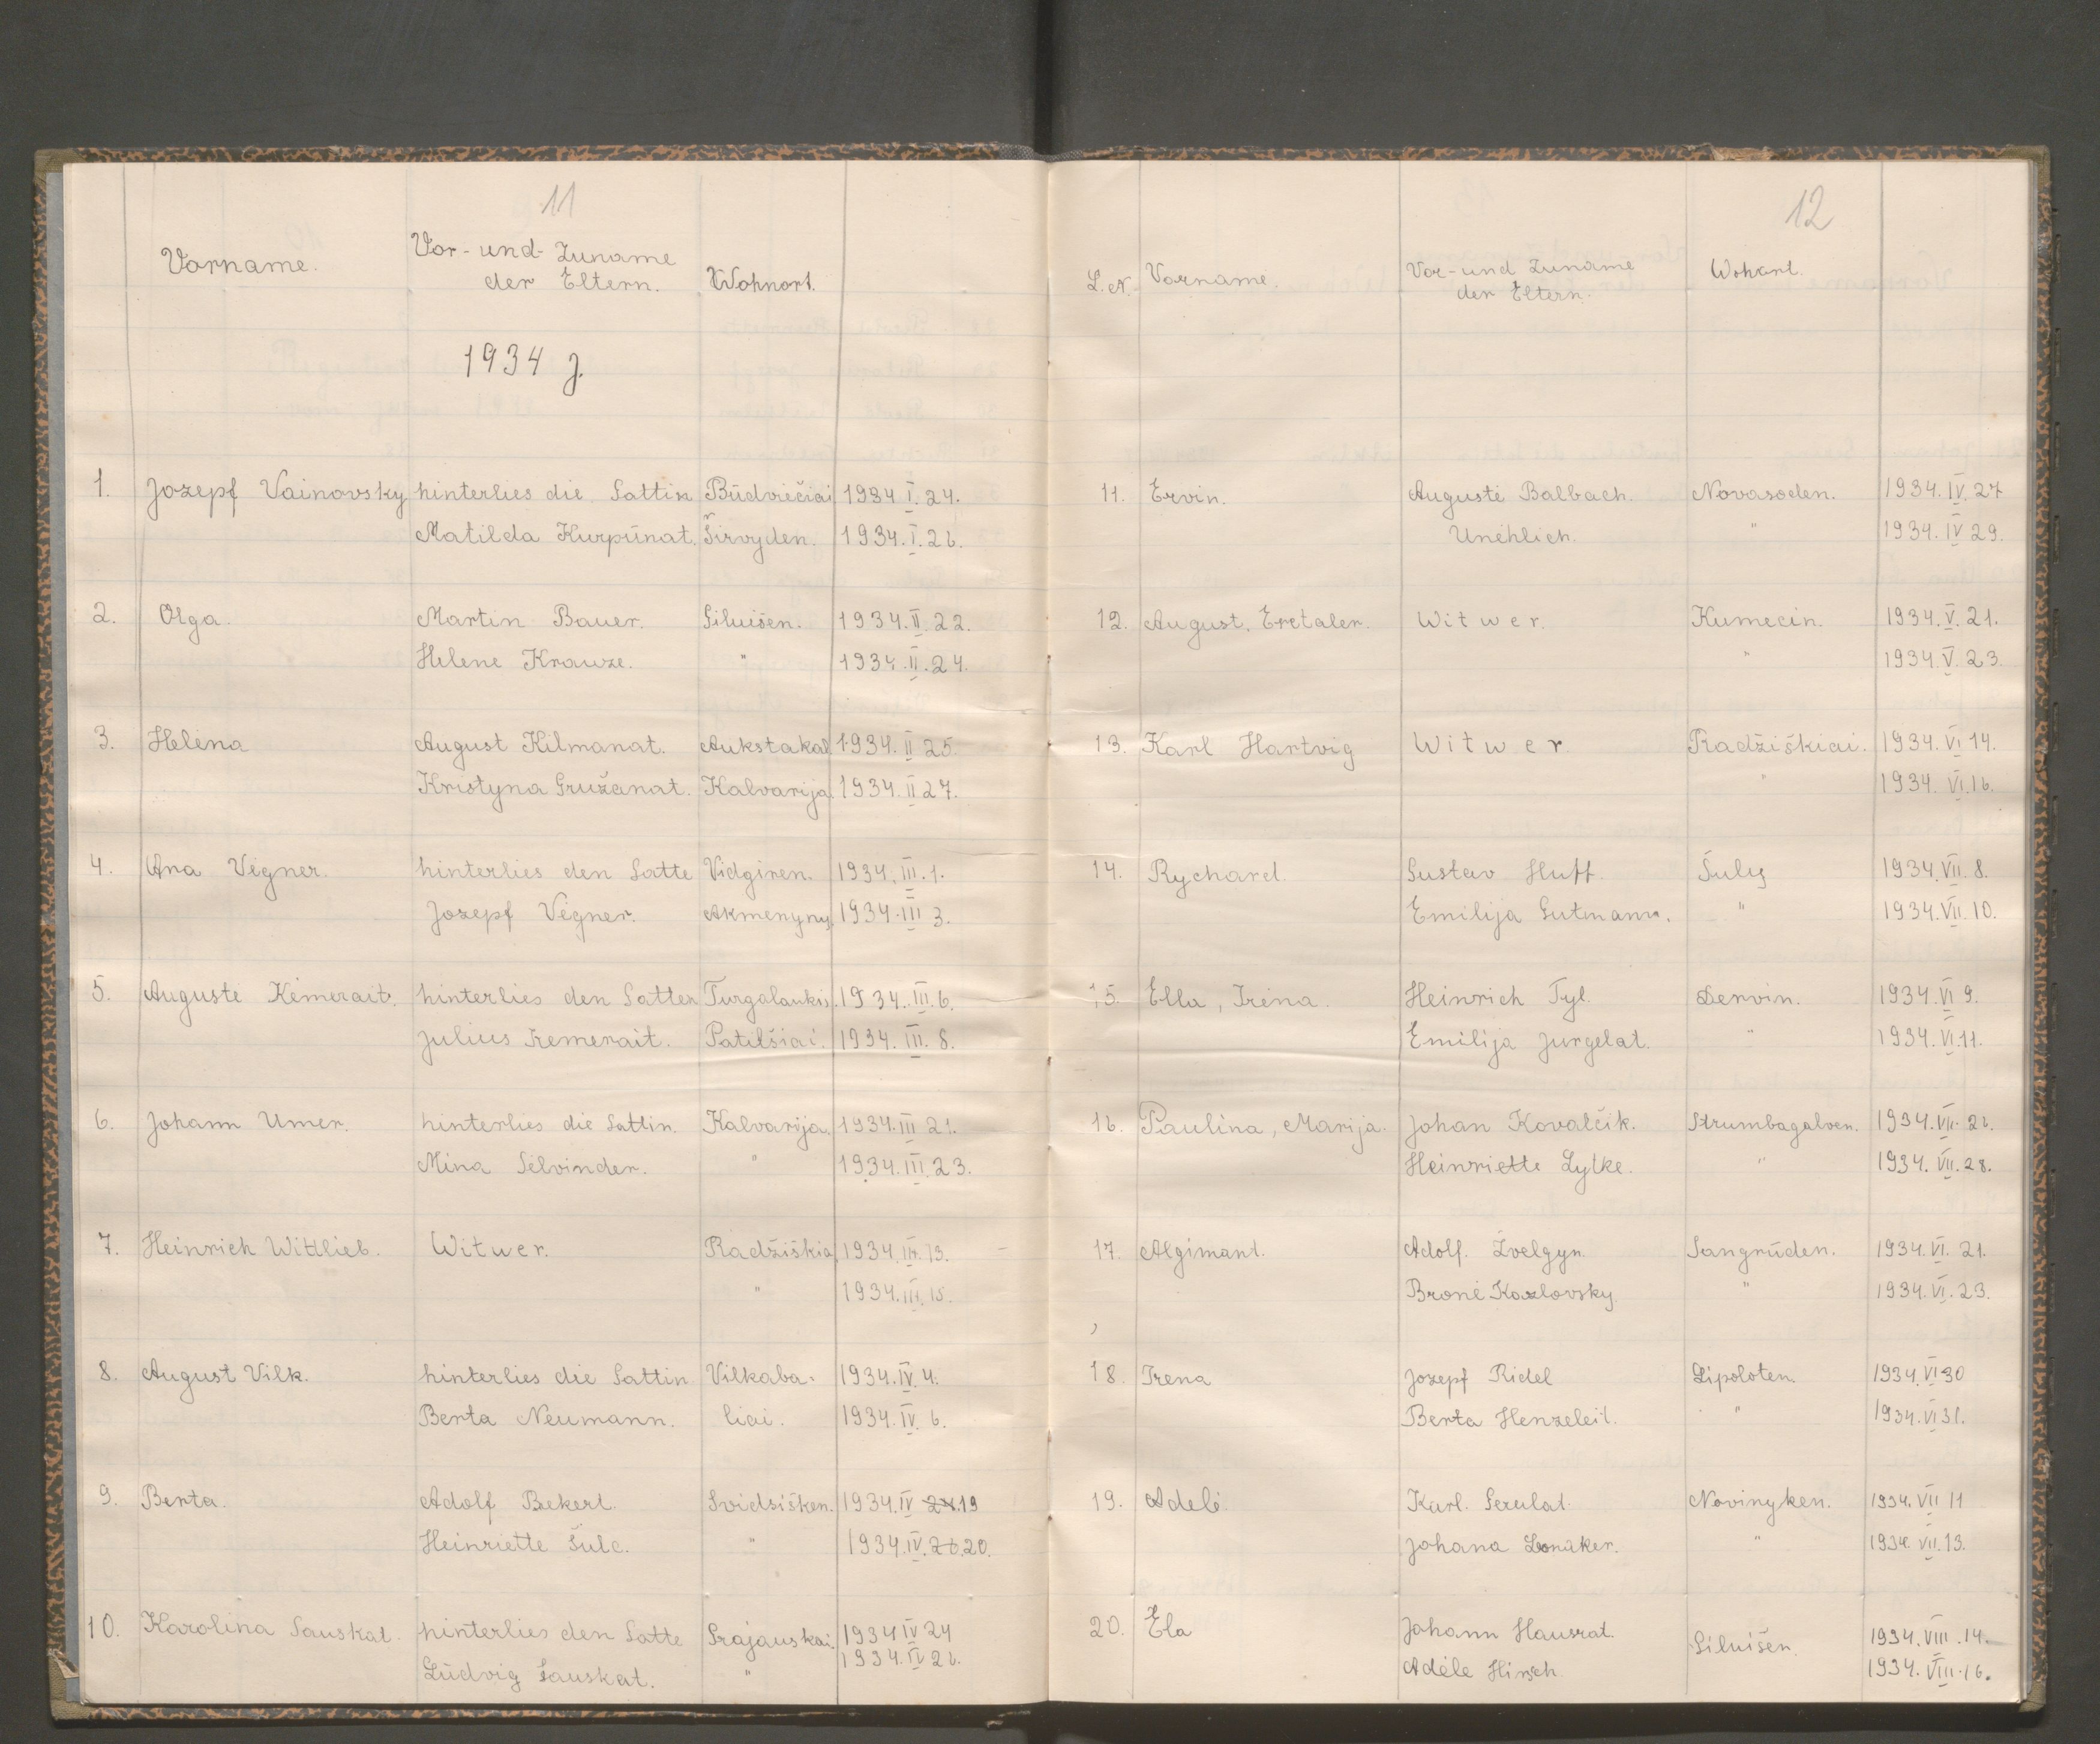 11
Vorname. Vor-und-Zuname der Eltern. Wohnort.
1934 J.
1. Jozepf Vainovsky hinterlies die Gattin Būdviečiai 1934 I. 24.
Matilda Kurpūnat. Širvyden. 1934. I. 26.
2. Olga. Martin Bauer. Giluišen. 1934. II. 22.
Helene Krauze. " 1934. II. 24.
3. Helena August Kilmanat. Aukstakal 1934. II 25.
Kristyna Gružanat. Kalvarija 1934. II 27.
4. Ana Vėgner. hinterlies den Gatte Vidgiren. 1934. III. 1.
Jozepf Vėgner. Akmenyny. 1934. III 3.
5. Auguste Kėmerait. hinterlies den Gatten Turgalaukis. 1934. III. 6.
Julius Kemerait. Patilšiai. 1934. III. 8.
6. Johann Umer. hinterlies die Gattin. Kalvarija. 1934. III 21.
Mina Selvinder. " 1934. III. 23.
7. Heinrich Wittlieb. Witwer. Radžiškia 1934. III. 13.
" 1934. III. 15.
8. August Vilk. hinterlies die Gattin Vilkaba- 1934. IV. 4.
Berta Neumann. liai. 1934. IV. 6.
9. Berta. Adolf Bekert. Svidsišken. 1934. IV 24. 19
Heinriette Šulc. " 1934. IV. 26. 20.
10. Karolina Sauskat. hinterlies den Gatte Grajauskai. 1934 IV 24
Lūdvig Sauskat. " 1934. IV 26.
12
L. N. Vorname. Vor-und Zuname der Eltern. Wohort.
11. Ervin. Augustė Balbach. Novasoden. 1934. IV. 27
Unėhlich. " 1934. IV 29.
12. August, Eretaler. Witwer. Kumecin. 1934. V. 21.
" 1934. V. 23.
13. Karl Hartvig Witwer. Radžiškiai. 1934. VI 14.
" 1934. VI. 16.
14. Rychard. Gustav Huff. Šuly 1934. VII. 8.
Emilija Gutmann. " 1934. VII. 10.
15. Ella, Irena. Heinrich Tyl. Dervin. 1934. VI 9.
Emilija Jurgelat. " 1934. VI. 11.
16. Paulina, Marija. Johan Kovalčik. Strumbagalven. 1934. VII. 26.
Heinriette Lylke. " 1934. VII. 28.
17. Algimant. Adolf. Žvelgyn. Sangrūden. 1934. VI. 21.
Bronė Kozlovsky. " 1934. VI. 23.
18. Irena Jozepf Ridel Lipoloten. 1934. VI 30
Berta Henzeleit. " 1934. VI 31.
19. Adelė Karl. Gerulat. Novinyken. 1934. VII 11
Johana " 1934. VII. 13.
20. Ela Johann Hausrat. Giluišen. 1934. VIII. 14.
Adėle Hirsch. 1934. VIII. 16.